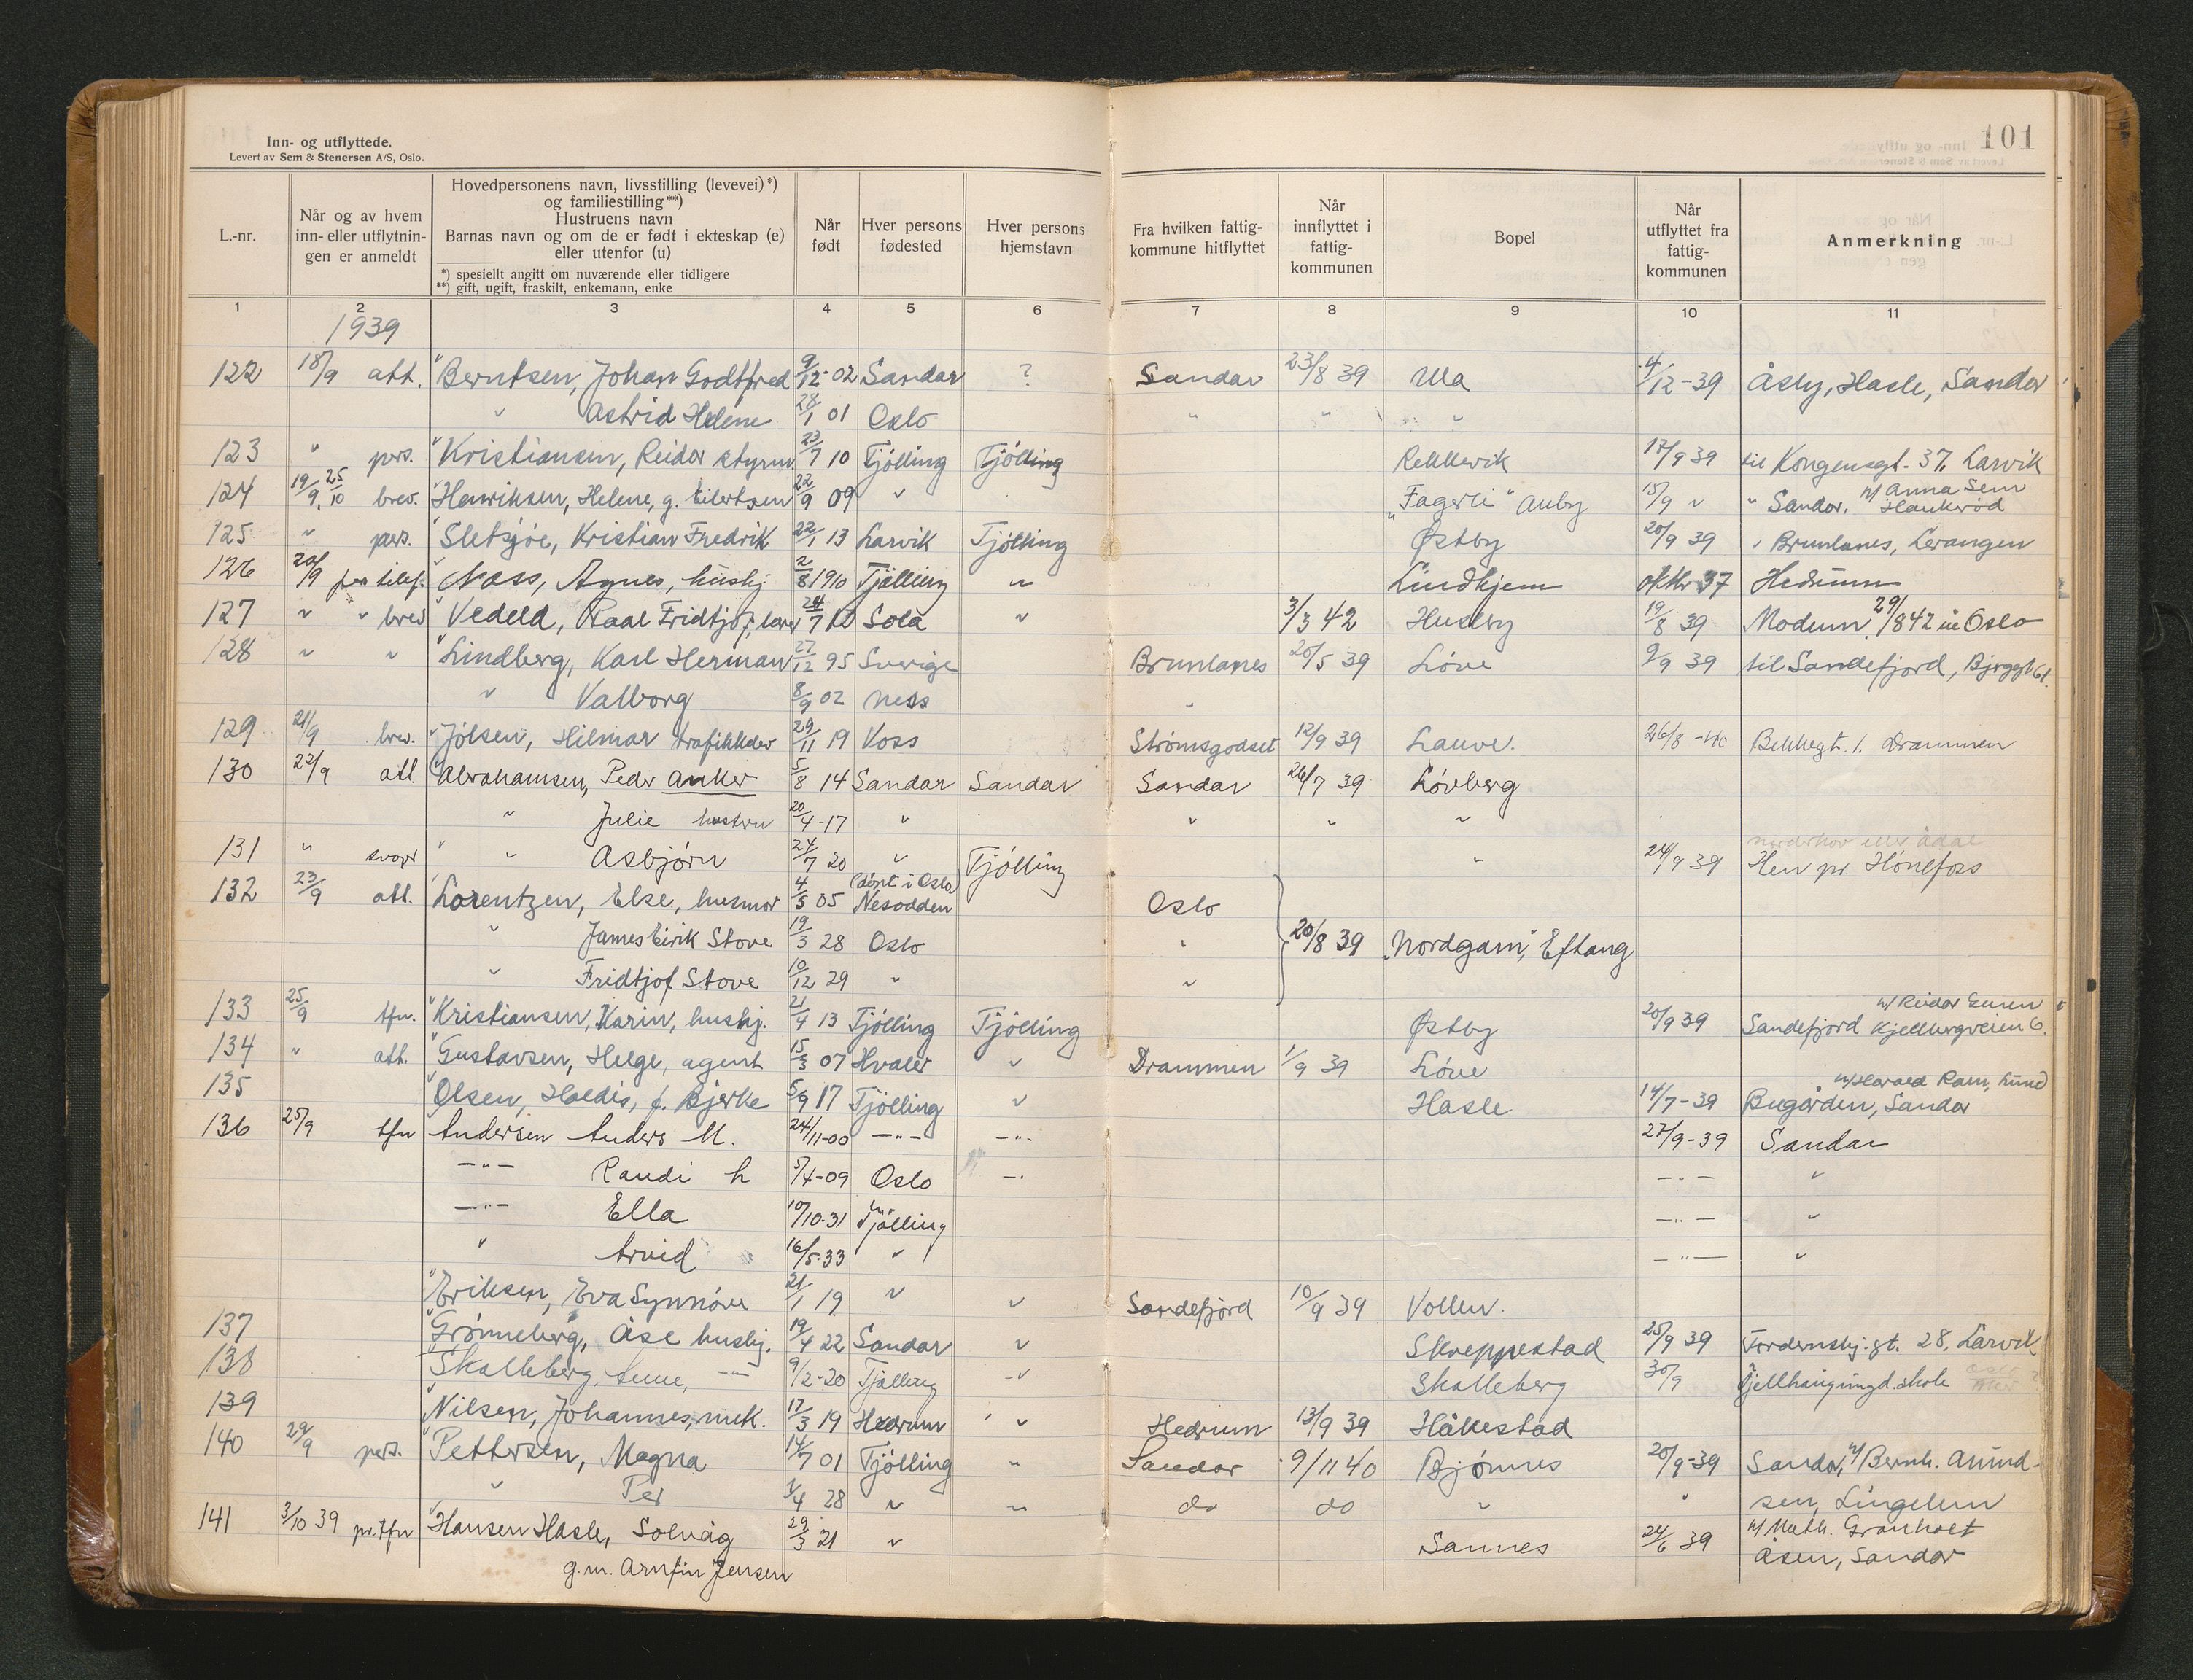 Inn- og utflyttede.
Levert av Sem & Stenersen A/S, Oslo.
101
L.-nr. | Når og av hvem inn- eller utflytnin-gen er anmeldt | Hovedpersonens navn, livsstilling (levevei)*) og familiestilling**) Hustruens navn Barnas navn og om de er født i ekteskap (e) eller utenfor (u) *) spesiellt angitt om nuværende eller tidligere **) gift, ugift, fraskilt, enkemann, enke | Når født | Hver persons fødested | Hver persons hjemstavn | Fra hvilken fattig-kommune hitflyttet | Når innflyttet i fattig-kommunen | Bopel | Når utflyttet fra fattig-kommunen | Anmerkning
1 2 3 4 5 6 7 8 9 10 11
1939
122 18/9 att. Berntsen, Johan Godtfred 9/12-02 Sandar ? Sandar 23/8 39 Ula 4/12-39 Åsly, Hasle, Sandar
" Astrid Helene 28/1 01 Oslo " " "
123 " pers. Kristiansen, Reidar styrm. 23/7 10 Tjölling Tjölling Rekkevik 17/9 39 til Kongensgt. 37, Larvik
124 19/9, 25/10 brev. Henriksen, Helene, g. Eilertsen 22/9 09 " "Fagerli" Auby 15/9 " " Sandar, v/ Anna Sem Haukerød
125 " pers. Sletsjøe, Kristian Fredrik 22/1 13 Larvik Tjölling Østby 20/9 39 " Brunlanes, Lerangen
126 20/9 per telef. Nass, Agnes, hushj. 2/8 1910 Tjølling " Lindhjem oktbr 37 Hedrum
127 " " brev Vedeld, Paal Fridtjof, lærer 24/7 12 Sola " 3/3 42 Huseby 19/8 39 Modum, 29/8 42 til Oslo
128 " " Lindberg, Karl Herman 27/12 95 Sverige Brunlanes 20/5 39 Löve 9/9 39 til Sandefjord, Bjerggt 61.
" Valborg 8/9 02 Ness "
129 21/9 brev. Jölsen, Hilmar trafikkelev 29/11 19 Voss Strømsgodset 12/9 39 Lauve. 26/8-40 Bekkegt. 1. Drammen
130 22/9 att. Abrahamsen, Peder Anker 5/8 14 Sandar Sandar Sandar 26/7 39 Lövberg
" Julie hustru 20/4-17 " " " "
131 " svoger " " Asbjörn 24/7 20 " Tjölling " 24/9 39 Norderhov eller Ådal Hen pr. Hönefoss
132 23/9 att. Lorentzen, Else, husmor 4/5 05 (döpt i Oslo) Nesodden Oslo
" James Eirik Stove 19/3 28 Oslo " 20/8 39 "Nordgarn", Eftang
" Fridtjof Stove 10/12 29 " "
133 25/9 tfn. Kristiansen, Karin, hushj. 21/4 13 Tjölling Tjölling Østby 20/9 39 Sandefjord v/ Reidar Evensen Kjellbergveien 6.
134 " att. Gustavsen, Helge, agent 15/3 07 Hvaler " Drammen 1/9 39 Löve
135 Olsen, Haldis, f. Bjerke 5/9 17 Tjölling " Hasle 14/7-39 Bugården, Sandar
136 25/9 tfn Andersen Anders M. 24/11-00 —"— —"— 27/9-39 Sandar
—"— Randi h 5/4-09 Oslo —" —"— "
—"— Ella 10/10-31 Tjölling —"— "
" Arvid 16/5-33 " —"— "
Eriksen, Eva Synnöve 21/1 19 " " Sandefjord 10/9 39 Vollen.
137 Grönneberg, Åse hushj. 19/4 22 Sandar " Skreppestad 25/9 39 Tordenskj. gt. 28, Larvik
138 Skalleberg, Anne, —"— 9/2-20 Tjølling —" Skalleberg 30/9 Fjellhaug ungd. skole Oslo
139 Nilsen, Johannes, mek. 17/3 19 Hedrum " Hedrum 13/9 39 Håkestad
140 29/9 pers. Pettersen, Magna 14/7 01 Tjölling " Sandar 9/11 40 Bjönnes 20/9-39 Sandar, v/ Bernh. Amund-
" Per 3/4 28 " " do do " " sen, Lingelum
141 3/10 39 pr. tfn Hansen Hasle, Solveig 29/3 21 " Sannes 24/6 39 v/ Math. Granholt
g.m. Arnfin Jensen Åsen, Sandar